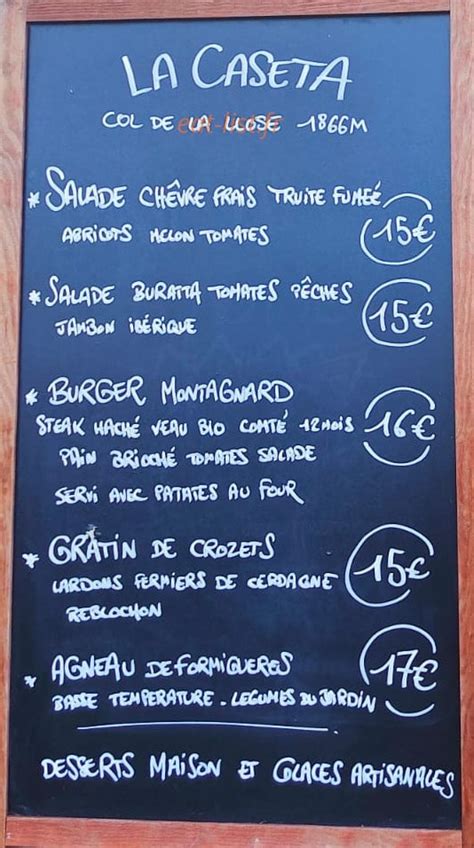 LA CASETA
COL DE LA LLOSE 1866M
eat-list.fr
* SALADE CHÊVRE FRAIS TRUITE FUMÉE
ABRICOTS MELON TOMATES 15€
* SALADE BURATTA TOMATES PÊCHES
JAMBON IBÉRIQUE 15€
* BURGER MONTAGNARD
STEAK HACHÉ VEAU BIO COMTÉ 12 MOIS 16€
PAIN BRIOCHÉ TOMATES SALADE
SERVI AVEC PATATES AU FOUR
* GRATIN DE CROZETS
LARDONS FERMIERS DE CERDAGNE 15€
REBLOCHON
* AGNEAU DE FORMIGUERES 17€
BASSE TEMPERATURE - LEGUMES DU JARDIN
DESSERTS MAISON ET GLACES ARTISANALES